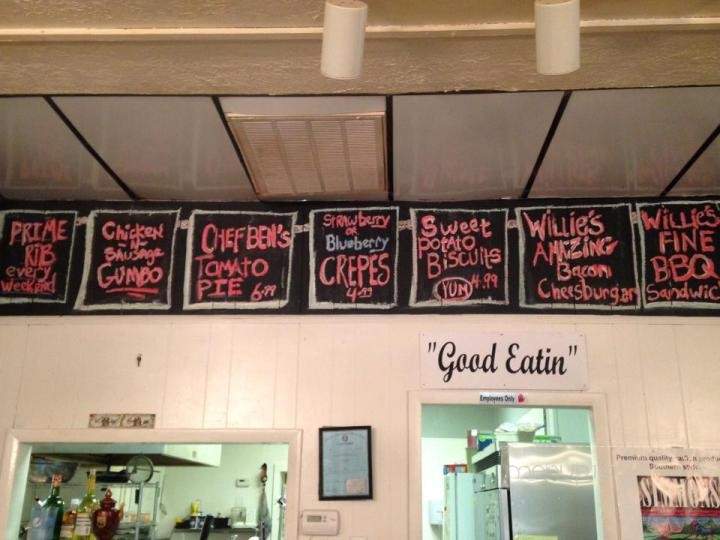 PRIME
RIB
every
weekend
Chicken
-N-
Sausage
GUMBO
CHEF BEN'S
TOMATO
PIE 6.99
Strawberry
OR
Blueberry
CREPES
4.99
Sweet
potato
Biscuits
YUM 4.99
WILLIE'S
AMAZING
Bacon
Cheesburger
WILLIE'S
FINE
BBQ
Sandwic
"Good Eatin"
Employees Only
Premium quality
Southern
SIMMONS